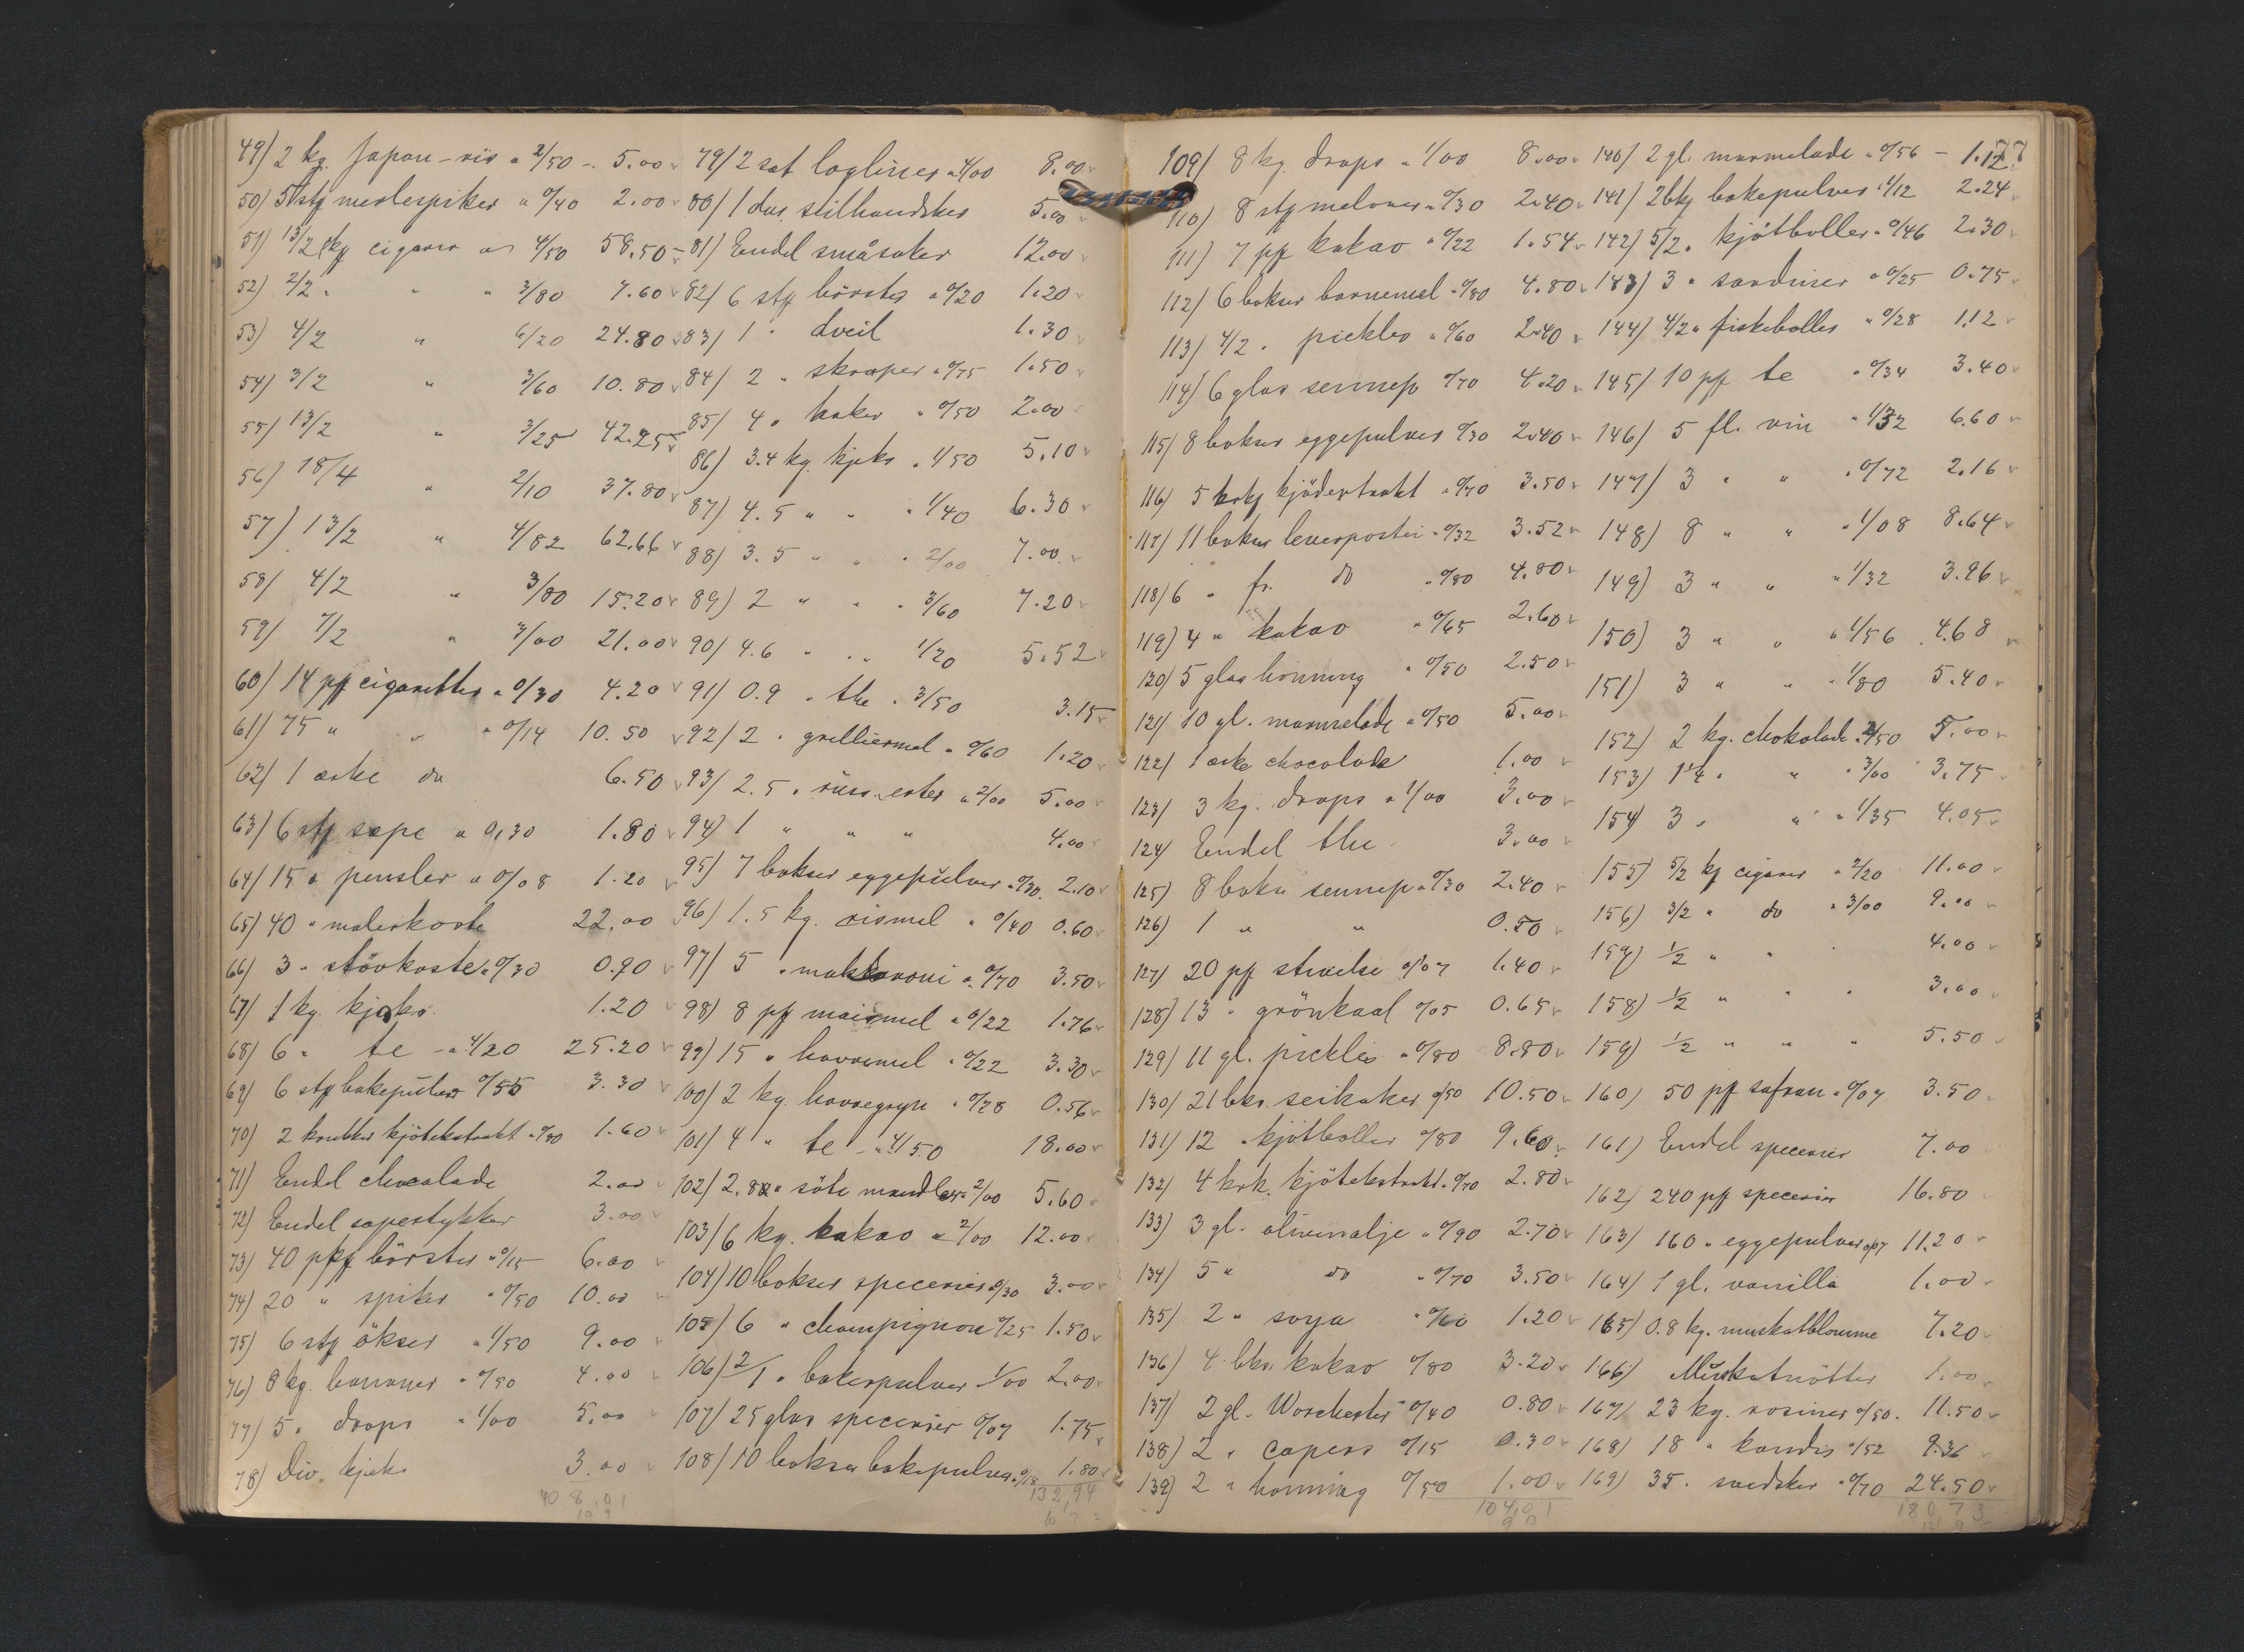 49) 2 kg. Japan-ris a 2/50 - 5.00
50) 5 stk merlespiker a 0/40 2.00
51) 13/2 kg cigarer a 4/50 58.50
52) 2/2 " " " 3/80 7.60
53) 4/2 " 6/20 24.80
54) 3/2 " 3/60 10.80
55) 13/2 " 3/25 42.25
56) 18/4 " 2/10 37.80
57) 13/2 " 4/82 62.66
58) 4/2 " 3/80 15.20
59) 7/2 " 3/00 21.00
60) 14 pk cigaretter a 0/30 4.20
61) 75 " " " 0/14 10.50
62) 1 æske do 6.50
63) 6 stk sæpe a 0,30 1.80
64) 15 " pensler a 0/08 1.20
65) 40 " malerkoste 22.00
66) 3 " stövkoste a 0/30 0.90
67) 1 kg. kjeks 1.20
68) 6 " te - a 4/20 25.20
69) 6 stk bakepulver 0/55 3.30
70) 2 krukker kjötekstrakt a 0/80 1.60
71) Endel chocolade 2.00
72) Endel sæpestykker 3.00
73) 40 pk börster a 0/15 6.00
74) 20 " spiker a 0/50 10.00
75) 6 stk ökser a 1/50 9.00
76) 8 kg. bananer a 0/50 4.00
77) 5 " drops a 1/00 5.00
78) Div. kjeks 3.00
408.01
79) 2 sæt loglines a 4/00 8.00
80) 1 dus. stilhandsker 5.00
81) Endel småsaker 12.00
82) 6 stk börster a 0/20 1.20
83) 1 " dveil 1.30
84) 2 " skraper a 0/75 1.50
85) 4 " haker a 0/50 2.00
86) 3.4 kg. kjeks a 1/50 5.10
87) 4.5 " " " 1/40 6.30
88) 3.5 " " " 2/00 7.00
89) 2 " " " 3/60 7.20
90) 4.6 " " " 1/20 5.52
91) 0.9 " the a 3/50 3.15
92) 2 " grilliermel a 0/60 1.20
93) 2.5 " russ. erter a 2/00 5.00
94) 1 " " " 4.00
95) 7 bokser eggepulver a 0/30 2.10
96) 1.5 kg. rismel a 0/40 0.60
97) 5 " makkaroni a 0/70 3.50
98) 8 pk maismel a 0/22 1.76
99) 15 " havremel a 0/22 3.30
100) 2 kg. havregryn a 0/28 0.56
101) 4 " te - a 4/50 18.00
102) 2.8 " söte mandler a 2/00 5.60
103) 6 kg. kakao a 2/00 12.00
104) 10 bokser specerier 0/30 3.00
105) 6 " champignon 0/25 1.50
106) 2/1 " bakerpulver 1/00 2.00
107) 25 glas specerier 0/07 1.75
108) 10 bokser bakepulver 0/18 1.80
132,94
109) 8 kg. drops a 1/00 8.00
110) 8 stk meloner a 0/30 2.40
111) 7 pk kakao a 0/22 1.54
112) 6 bokser barnemel a 0/80 4.80
113) 4/2 " pickles a 0/60 2.40
114) 6 glas sennep 0/70 4.20
115) 8 bokser eggepulver 0/30 2.40
116) 5 krk kjödextrakt a 0/70 3.50
117) 11 bokser leverpostei a 0/32 3.52
118) 6 " fr. do a 0/80 4.80
119) 4 " kakao a 0/65 2.60
120) 5 glas honning a 0/50 2.50
121) 10 gl. marmelade a 0/50 5.00
122) 1 æske chocolade 1.00
123) 3 kg. drops a 1/00 3.00
124) Endel the 3.00
125) 8 bokser sennep a 0/30 2.40
126) 1 " " 0.50
127) 20 pk stivelse 0/07 1.40
128) 13 " grönkaal 0/05 0.65
129) 11 gl. pickles a 0/80 8.80
130) 21 bks. seikaker 0/50 10.50
131) 12 " kjötboller 0/80 9.60
132) 4 krk. kjötekstrakt a 0/70 2.80
133) 3 gl. olivenolje a 0/90 2.70
134) 5 " do a 0/70 3.50
135) 2 " soya a 0/60 1.20
136) 4 bks. kakao 0/80 3.20
137) 2 gl. Worchester 0/40 0.80
138) 2 " capers 0/15 0.30
139) 2 " honning 0/50 1.00
104,01
140) 2 gl. marmelade a 0/56 - 1.12
141) 2 bks bakepulver 1/12 2.24
142) 5/2 " kjötboller a 0/46 2.30
143) 3 " sardiner a 0/25 0.75
144) 4/2 " fiskeboller a 0/28 1.12
145) 10 pk te a 0/34 3.40
146) 5 fl. vin a 1/32 6.60
147) 3 " " a 0/72 2.16
148) 8 " " a 1/08 8.64
149) 3 " " a 1/32 3.96
150) 3 " " a 1/56 4.68
151) 3 " " a 1/80 5.40
152) 2 kg. chokolade a 2/50 5.00
153) 1 1/4 " " a 3/00 3.75
154) 3 " " a 1/35 4.05
155) 5/2 kg cigarer a 2/20 11.00
156) 3/2 " do a 3/00 9.00
157) 1/2 " " " 4.00
158) 1/2 " " " 3.00
159) 1/2 " " " 5.50
160) 50 pk safran a 0/07 3.50
161) Endel specerier 7.00
162) 240 pk specerier 16.80
163) 160 " eggepulver 0/07 11.20
164) 1 gl. vanilla 1.00
165) 0.8 kg. muskatblomme 7.20
166) Muskatnötter 1.00
167) 23 kg. rosiner 0/50 11.50
168) 18 " kandis 0/52 9.36
169) 35 " svedsker a 0/70 24.50
180,73